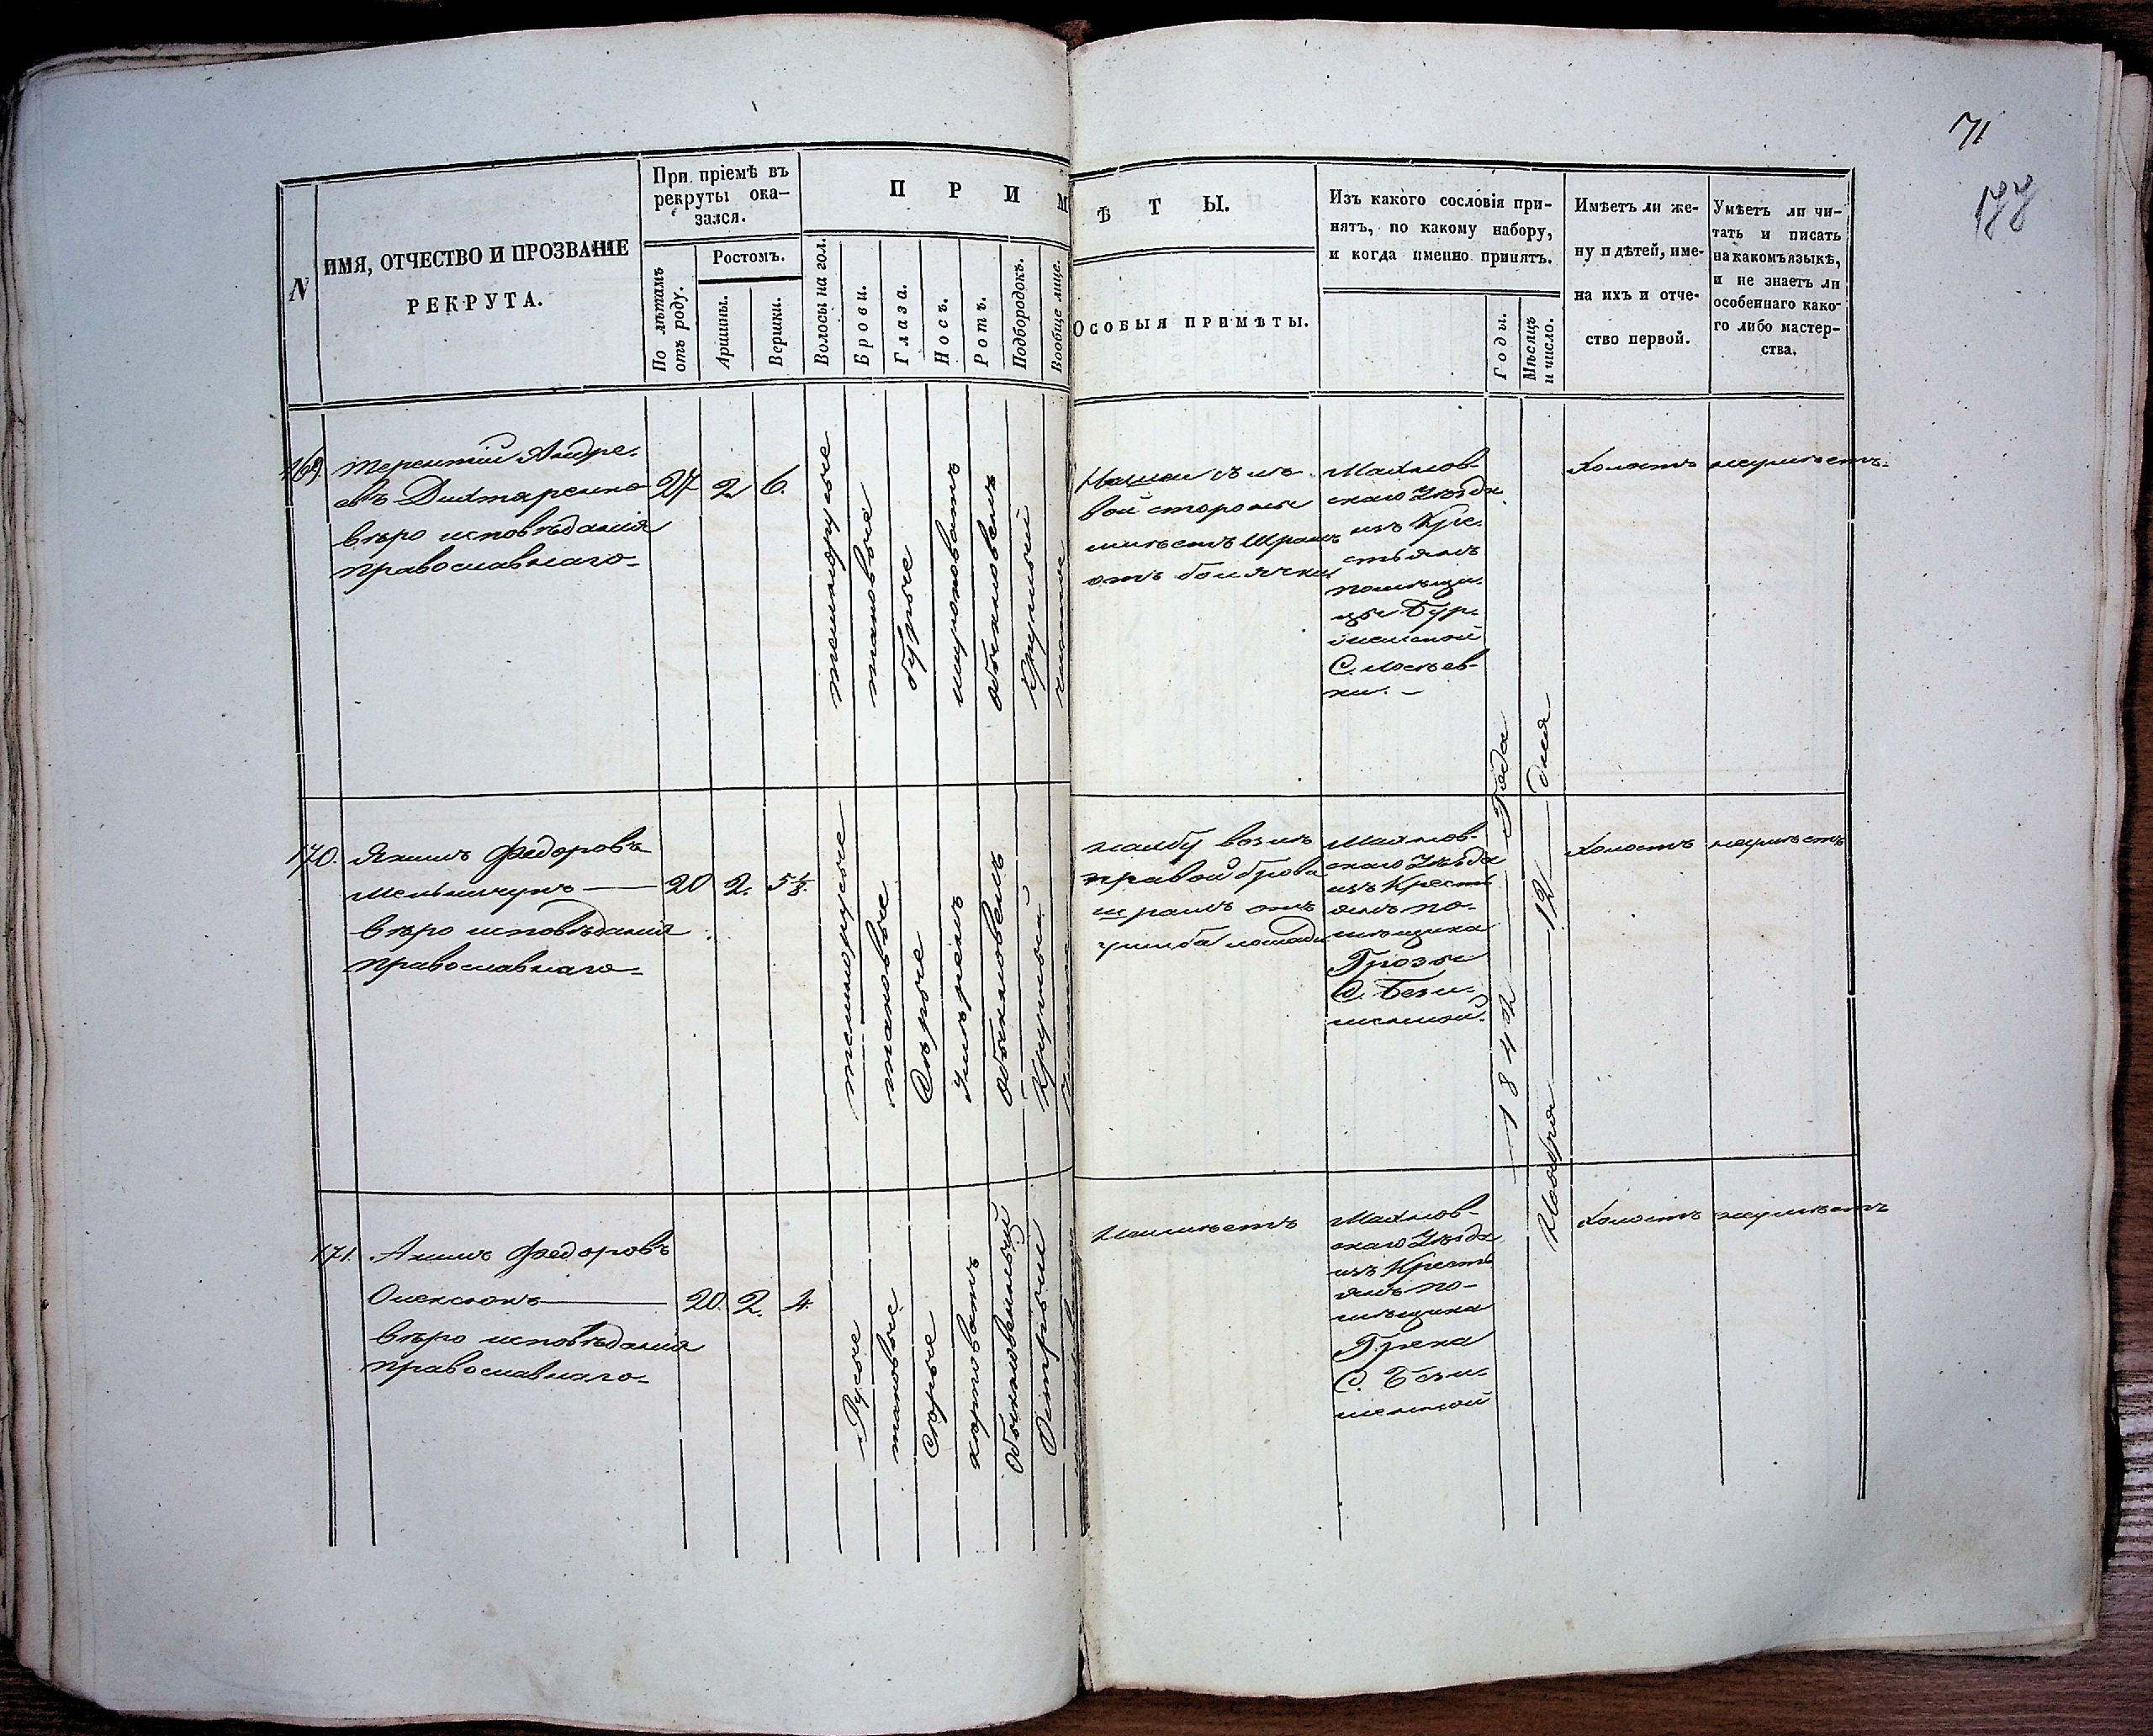 71
177
N
ИМЯ, ОТЧЕСТВО И ПРОЗВАНІЕ
РЕКРУТА.
При пріемѣ въ
рекруты ока-
зался.
По лѣтамъ
отъ роду.
Ростомъ.
Аршины.
Вершки.
ПРИМ
ѢТЫ.
Волосы на гол.
Брови.
Глаза.
Носъ.
Ротъ.
Подбородокъ.
Вообще лице.
ОСОБЫЯ ПРИМѢТЫ.
Изъ какого сословія при-
нятъ, по какому набору,
и когда именно принятъ.
Годы.
Мѣсяцъ
и число.
Имѣетъ ли же-
ну и дѣтей, име-
на ихъ и отче-
ство первой.
Умѣетъ ли чи-
тать и писать
на какомъ языкѣ,
и не знаетъ ли
особеннаго како-
го либо мастер-
ства.
169.
Терентій Андре-
евъ Дихтяренко
вѣро исповѣданія
православнаго
27
2
6.
темнорусые
таковые
бурые
широковатъ
обыкновенъ
Круглый
чистое
вой стороны
имѣетъ шрамъ
отъ болячки
Махнов-
скаго Уѣзда
изъ Кре-
стьянъ
помѣщи-
цы
С.
ки.
Холостъ
неумѣетъ
170.
Якимъ Федоровъ
Мельничукъ
вѣро исповѣданія
православнаго
20
2.
5 1/8.
темнорусые
таковые
Сѣрые
Умѣренъ
обыкновенъ
Круглый
Чистое
на лбу возлѣ
правой брови
шрамъ отъ
ушиба лошади
Махнов-
скаго Уѣзда
изъ Кресть
янъ по-
мѣщика
Грозы
С.
1842 Года
Ноября 12 дня
Холостъ
неумѣетъ
171.
Акимъ Федоровъ
Олексюкъ
вѣро исповѣданія
православнаго
20.
2.
4.
Русые
таковые
Сѣрые
Обыкновенный
Острый
Неимѣетъ
Махнов-
скаго Уѣзда
изъ Кресть
янъ по-
мѣщика
С.
Холостъ
неумѣетъ